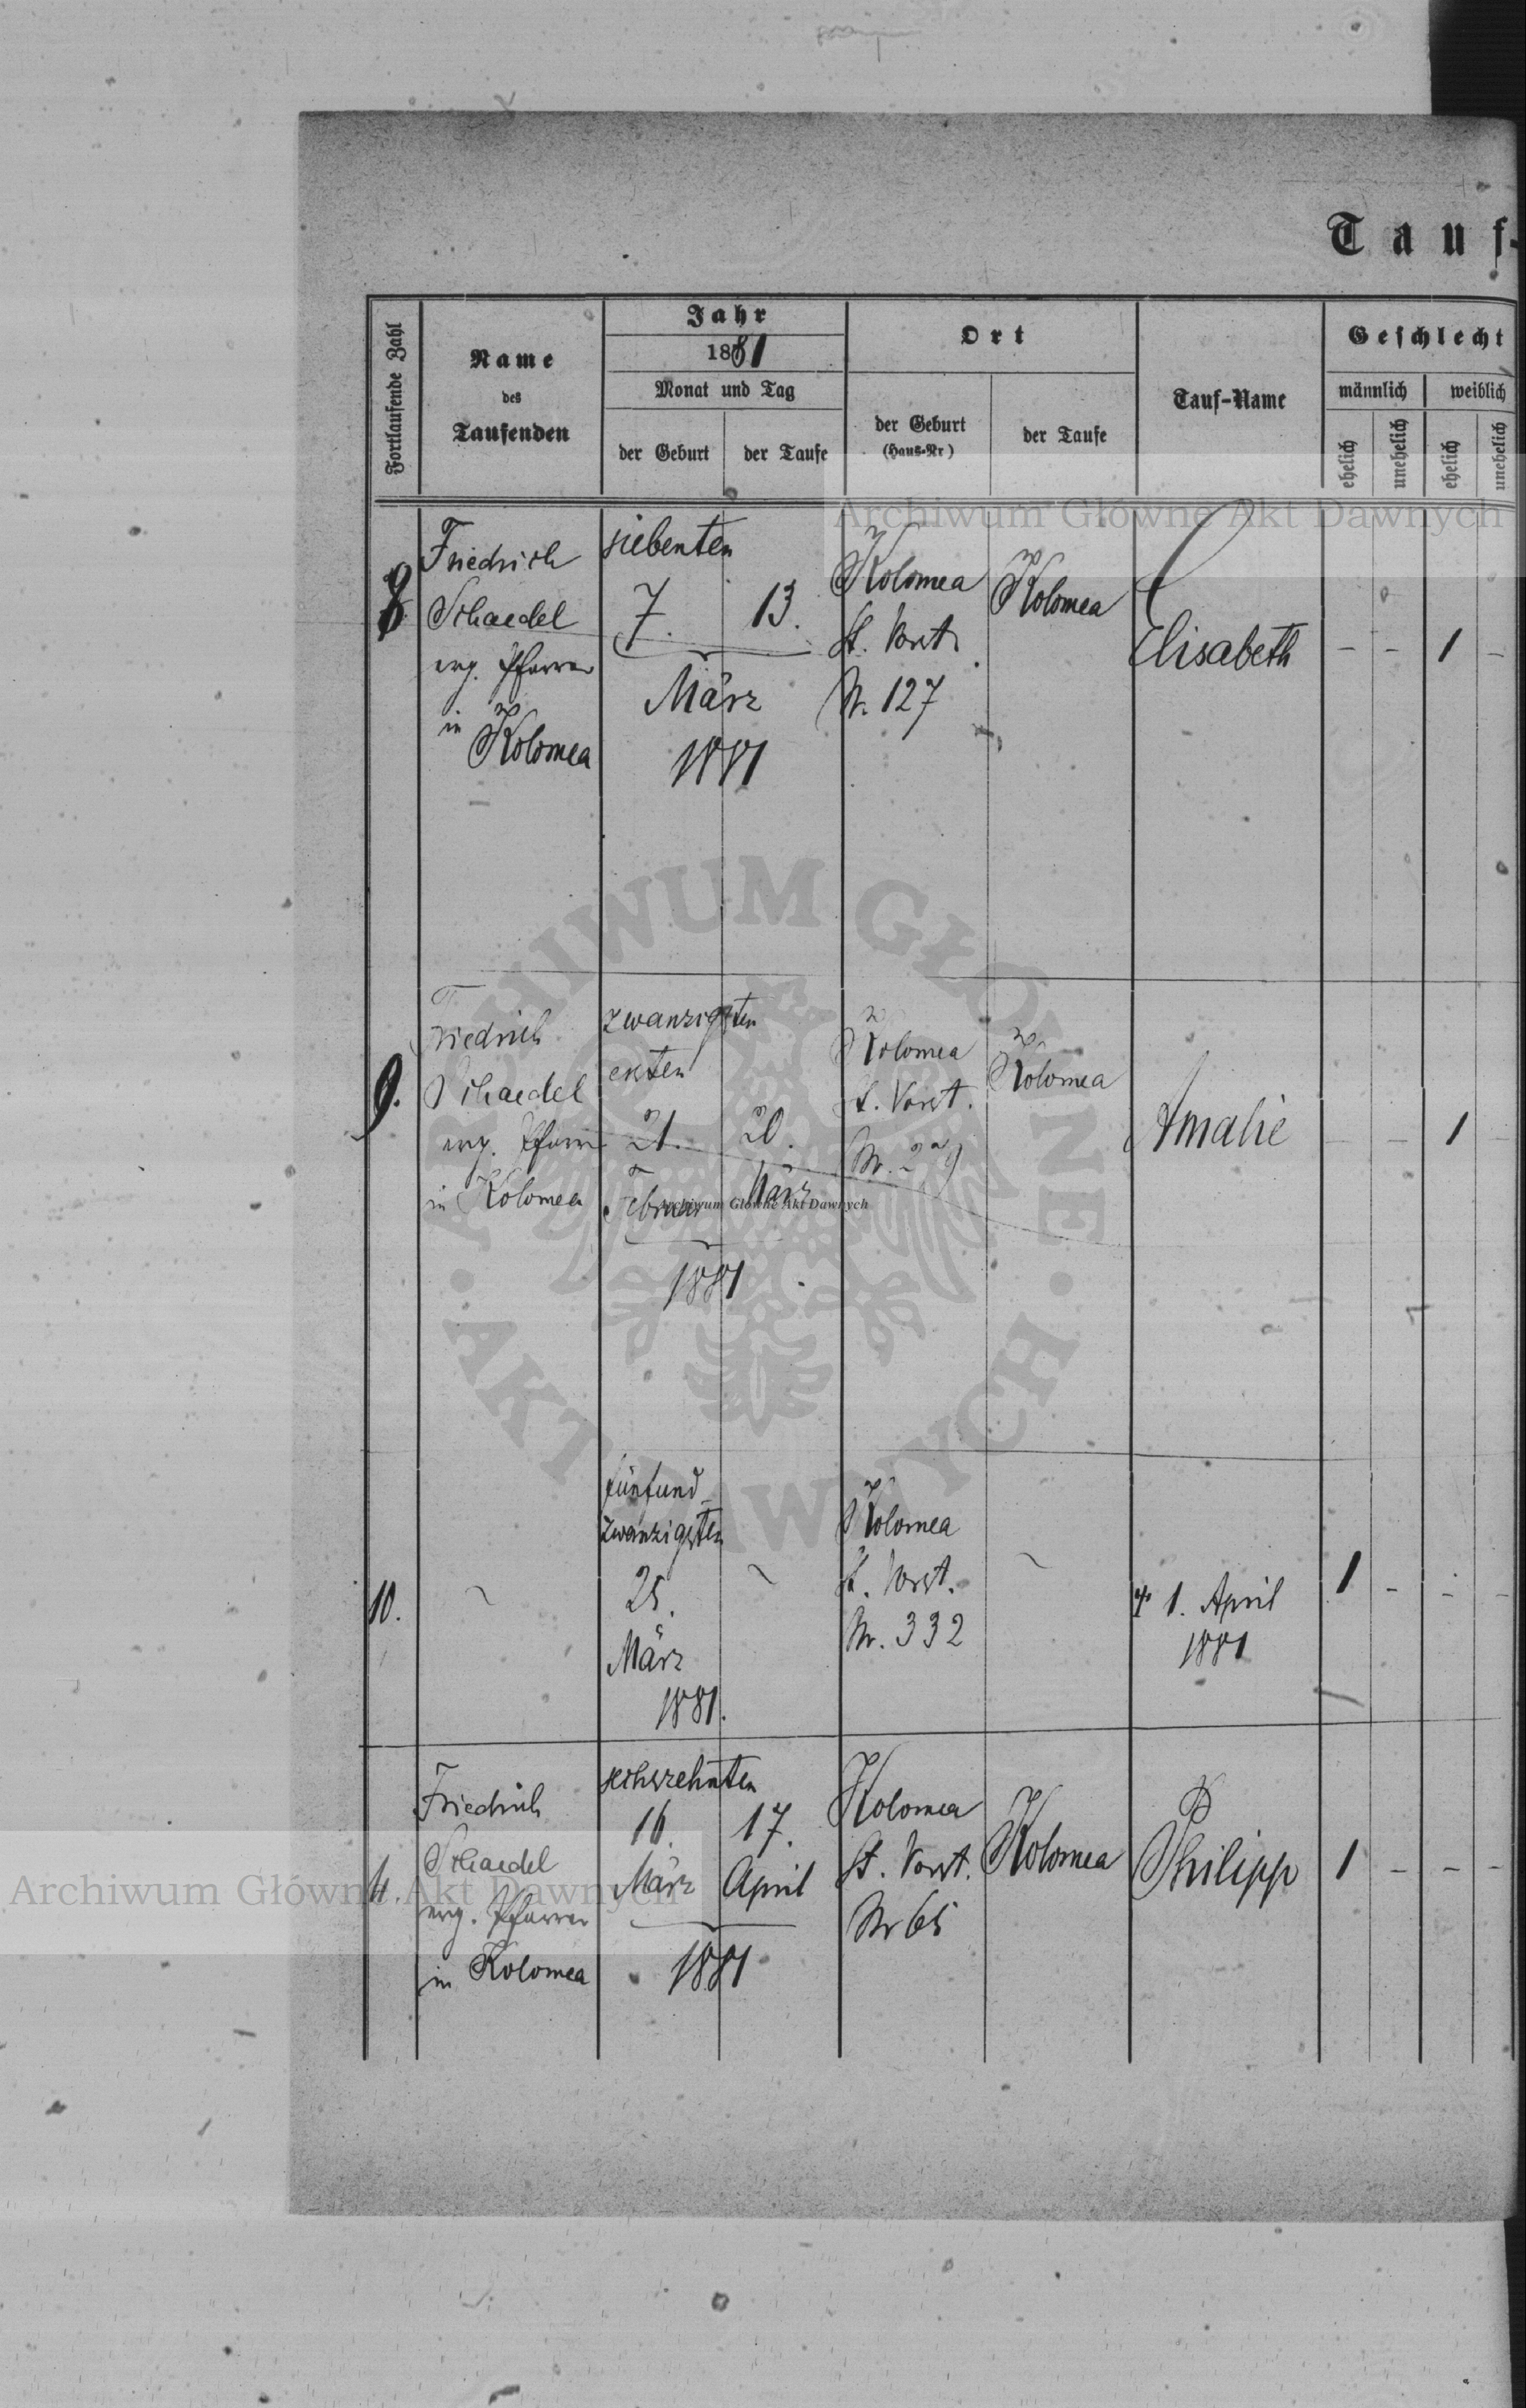 Tauf-
Fortlaufende Zahl
Name
des
Taufenden
Jahr
1881
Monat und Tag
der Geburt
der Taufe
Ort
der Geburt
(Haus-Nr)
der Taufe
Tauf-Name
Geschlecht
männlich
weiblich
ehelich
unehelich
ehelich
unehelich
Archiwum Główne Akt Dawnych
8
Friedrich
Schaedel
evg. Pfarrer
in
Kolomea
siebenten
7.
13.
März
1881
Kolomea
St. Vorst.
Nr. 127
Kolomea
Elisabeth
- - 1 -
9.
Friedrich
Schaedel
evg. Pfarrer
in Kolomea
zwanzigsten
ersten
21.
20.
Februar
März
1881
Kolomea
St. Vorst.
Kolomea
Amalie
- - 1 -
Archiwum Główne Akt Dawnych
ARCHIWUM GŁÓWNE
• AKT DAWNYCH •
10.
~
fünfund
zwanzigsten
25.
März
1881.
~
Kolomea
St. Vorst.
Nr. 332
~
† 1. April
1881
1 - - -
11.
Friedrich
Schaedel
evg. Pfarrer
in Kolomea
sechszehnten
16.
17.
März
April
1881
Kolomea
St. Vorst.
Nr 65
Kolomea
Philipp
1 - - -
Archiwum Główne Akt Dawnych